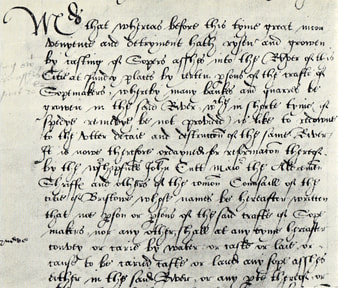 that whereas before this tyme great incon
venyence and detryment hath rysen and growen
by casting of Sopers asshes into the River of this
Citie at sundry places by certen psons of the crafte of
Sopemakers whereby many bankes and
growen in the said River wch in shorte tyme if
spedye remedye be not provided is like to
to the utter decaie and destruccon of the same River
It is nowe therefore ordayned for reformacon therof
by the John Cutt maior the Aldermen
Shriffe and others of the comon Counsaill of the
citie of Bristowe whose names be hereafter written
that noe pson or psons of the said crafte of Sope
makers nor any other shall at any tyme hereafter
convey or carie by water or caste or laie or
cause to be caried caste or laied any sope asshes
either in the said River or any therof or